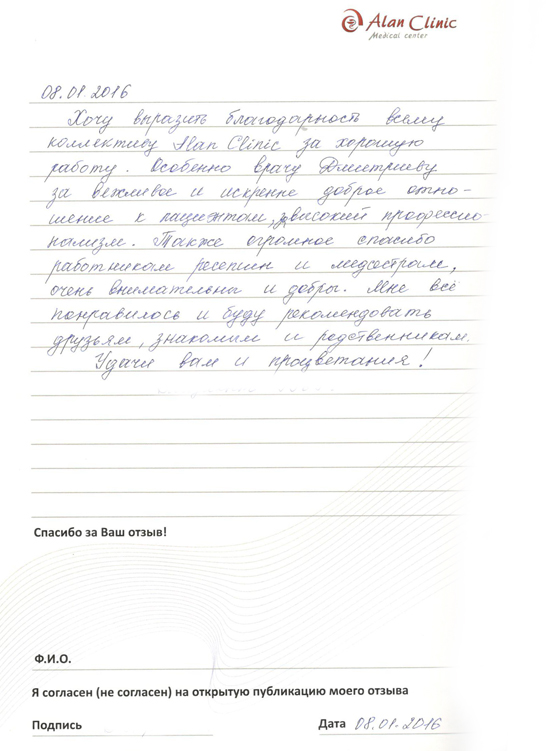 Alan Clinic
Medical center
08.01.2016
Хочу выразить благодарность всему
коллективу Alan Clinic за хорошую
работу. Особенно врачу Дмитриеву
за вежливое и искренне доброе отно-
шение к пациентам, высокий профессио-
нализм. Также огромное спасибо
работникам ресепшн и медсестрам,
очень внимательны и добры. Мне всё
понравилось и буду рекомендовать
друзьям, знакомым и родственникам.
Удачи вам и процветания!
Спасибо за Ваш отзыв!
Ф.И.О.
Я согласен (не согласен) на открытую публикацию моего отзыва
Подпись Дата 08.01-2016